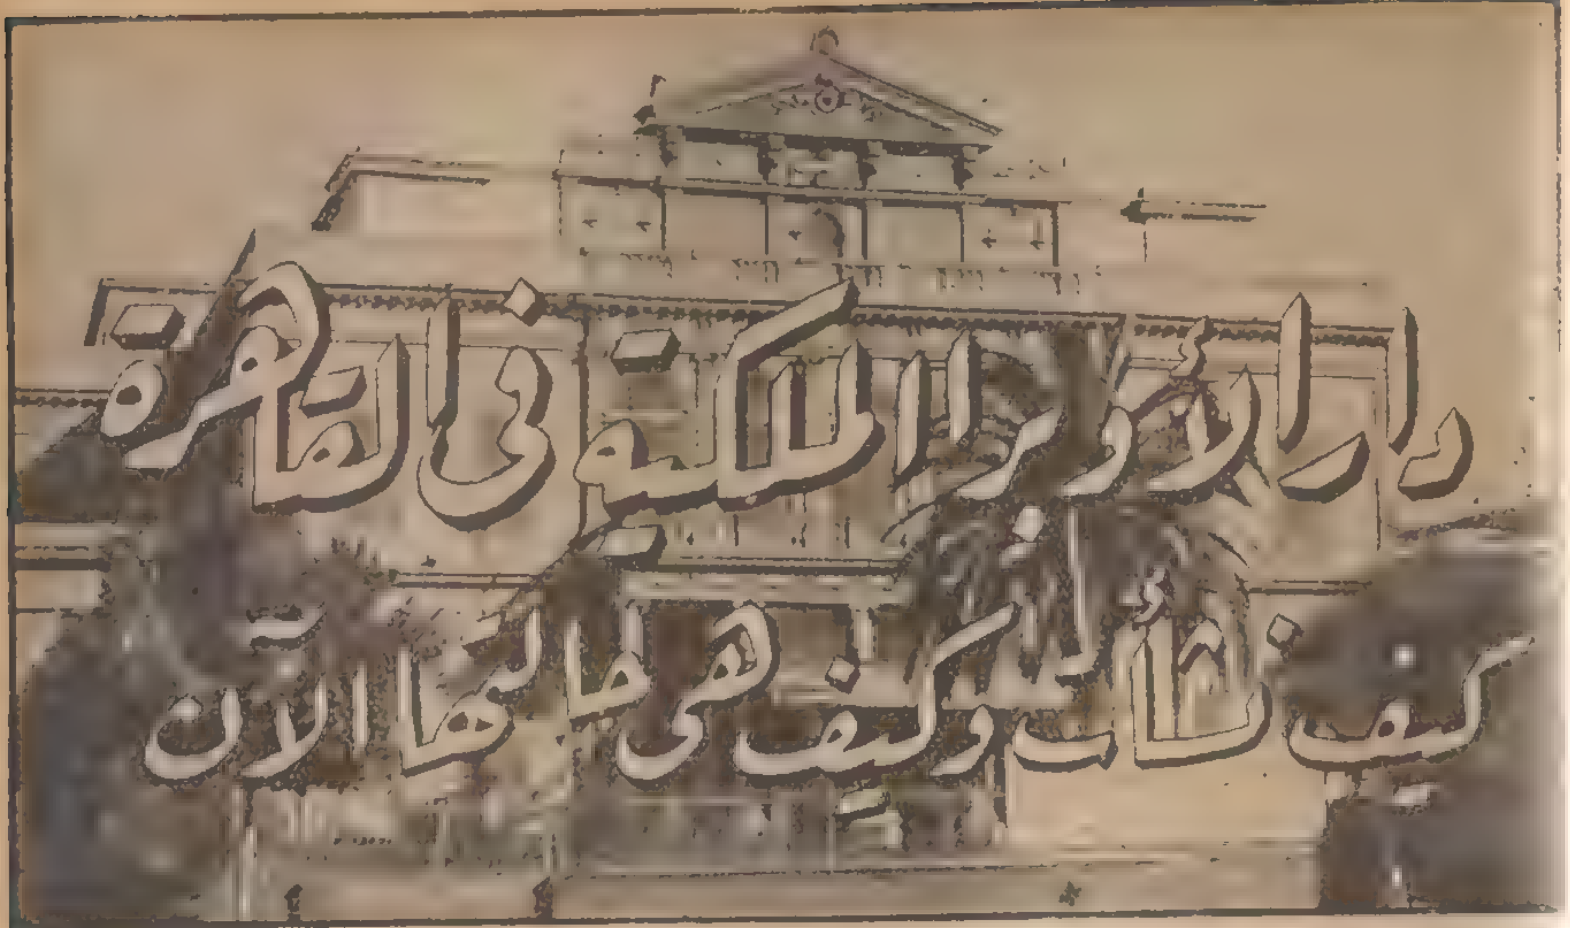 دار الأوبرا الملكية في القاهرة
كيف نشأت وكيف هي حالتها الآن